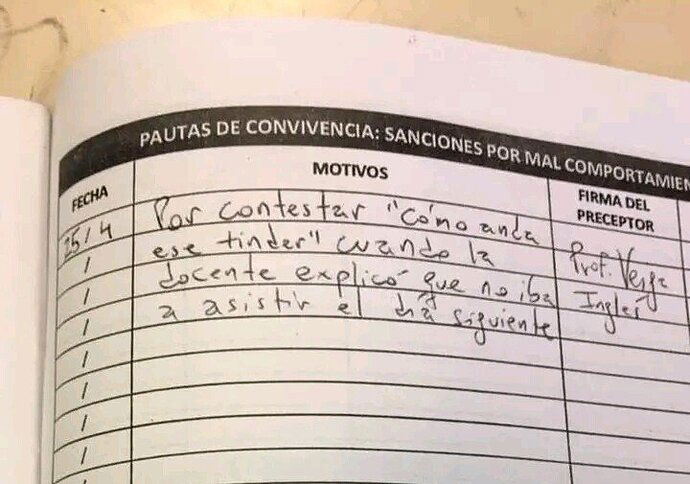 PAUTAS DE CONVIVENCIA: SANCIONES POR MAL COMPORTAMIEN
FECHA
MOTIVOS
FIRMA DEL
PRECEPTOR
25/4
Por contestar "cómo anda
ese tinder" cuando la
docente explicó que no iba
a asistir el día siguiente
Prof. Verga
Inglés
/
/
/
/
/
/
/
/